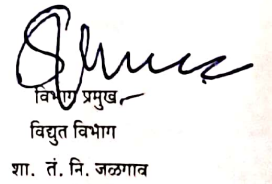 विभाग प्रमुख
विद्युत विभाग
शा. तं. नि. जळगाव